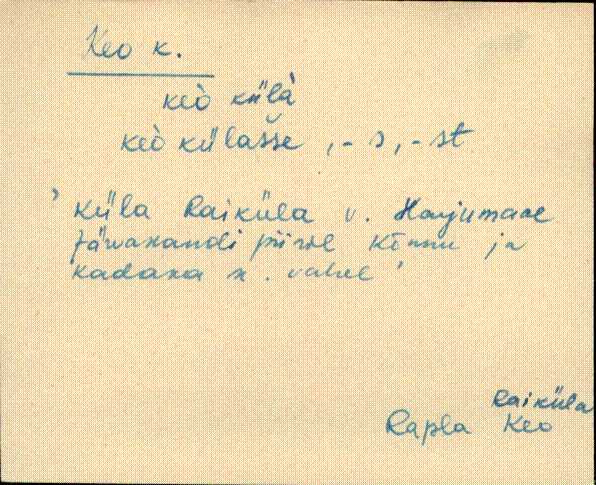 Keo k.
keò külà
keò külašse, -s, -st
' küla Raiküla v. Harjumaal
Järvakandi piiril Kõnnu ja
kadaka k. vahel '
Raiküla
Rapla Keo